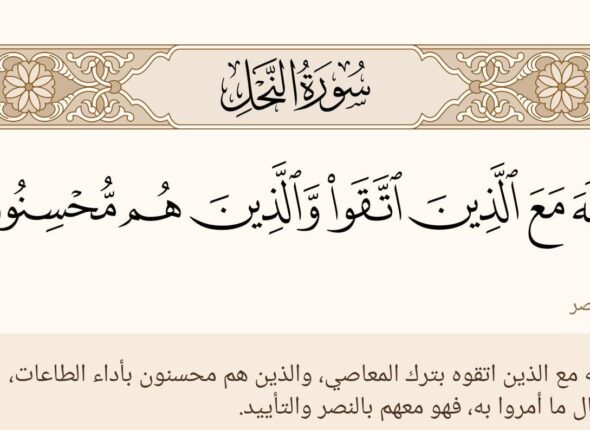 سُورَةُ النَّحْلِ
مَعَ ٱلَّذِينَ ٱتَّقَوا۟ وَّٱلَّذِينَ هُم مُّحْسِنُو
مع الذين اتقوه بترك المعاصي، والذين هم محسنون بأداء الطاعات،
ما أمروا به، فهو معهم بالنصر والتأييد.